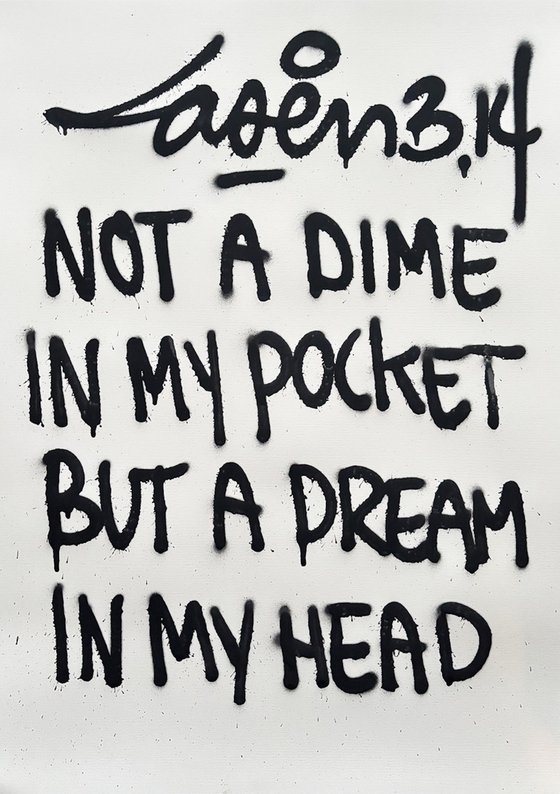 Laser 3.14
NOT A DIME
IN MY POCKET
BUT A DREAM
IN MY HEAD